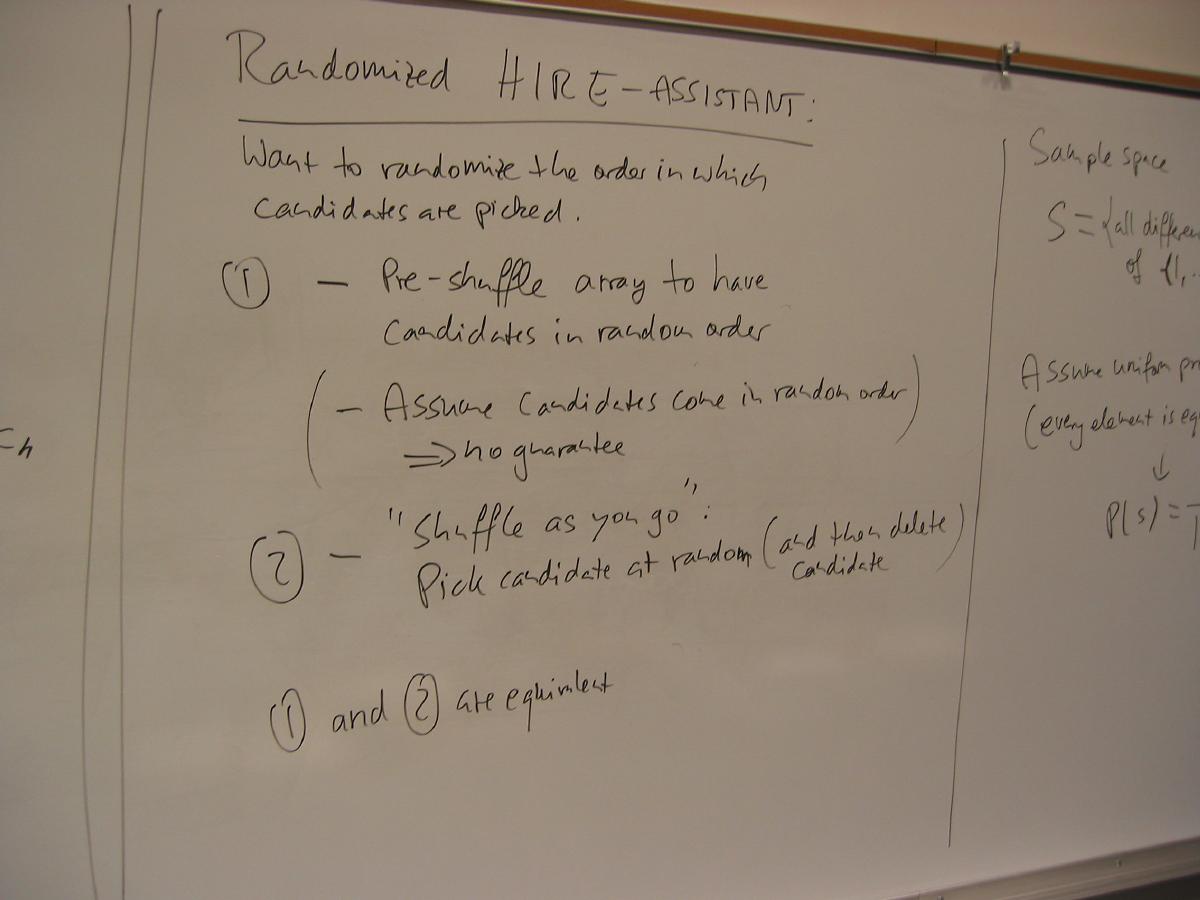 Randomized HIRE-ASSISTANT:
Want to randomize the order in which
candidates are picked.
① - Pre-shuffle array to have
candidates in random order
(- Assume candidates come in random order)
⇒ no guarantee
② - "Shuffle as you go":
Pick candidate at random (and then delete
candidate)
① and ② are equivalent
Sample space
S = {all differen
of {1, ..
Assume uniform pr
(every element is eq
↓
P(s) =